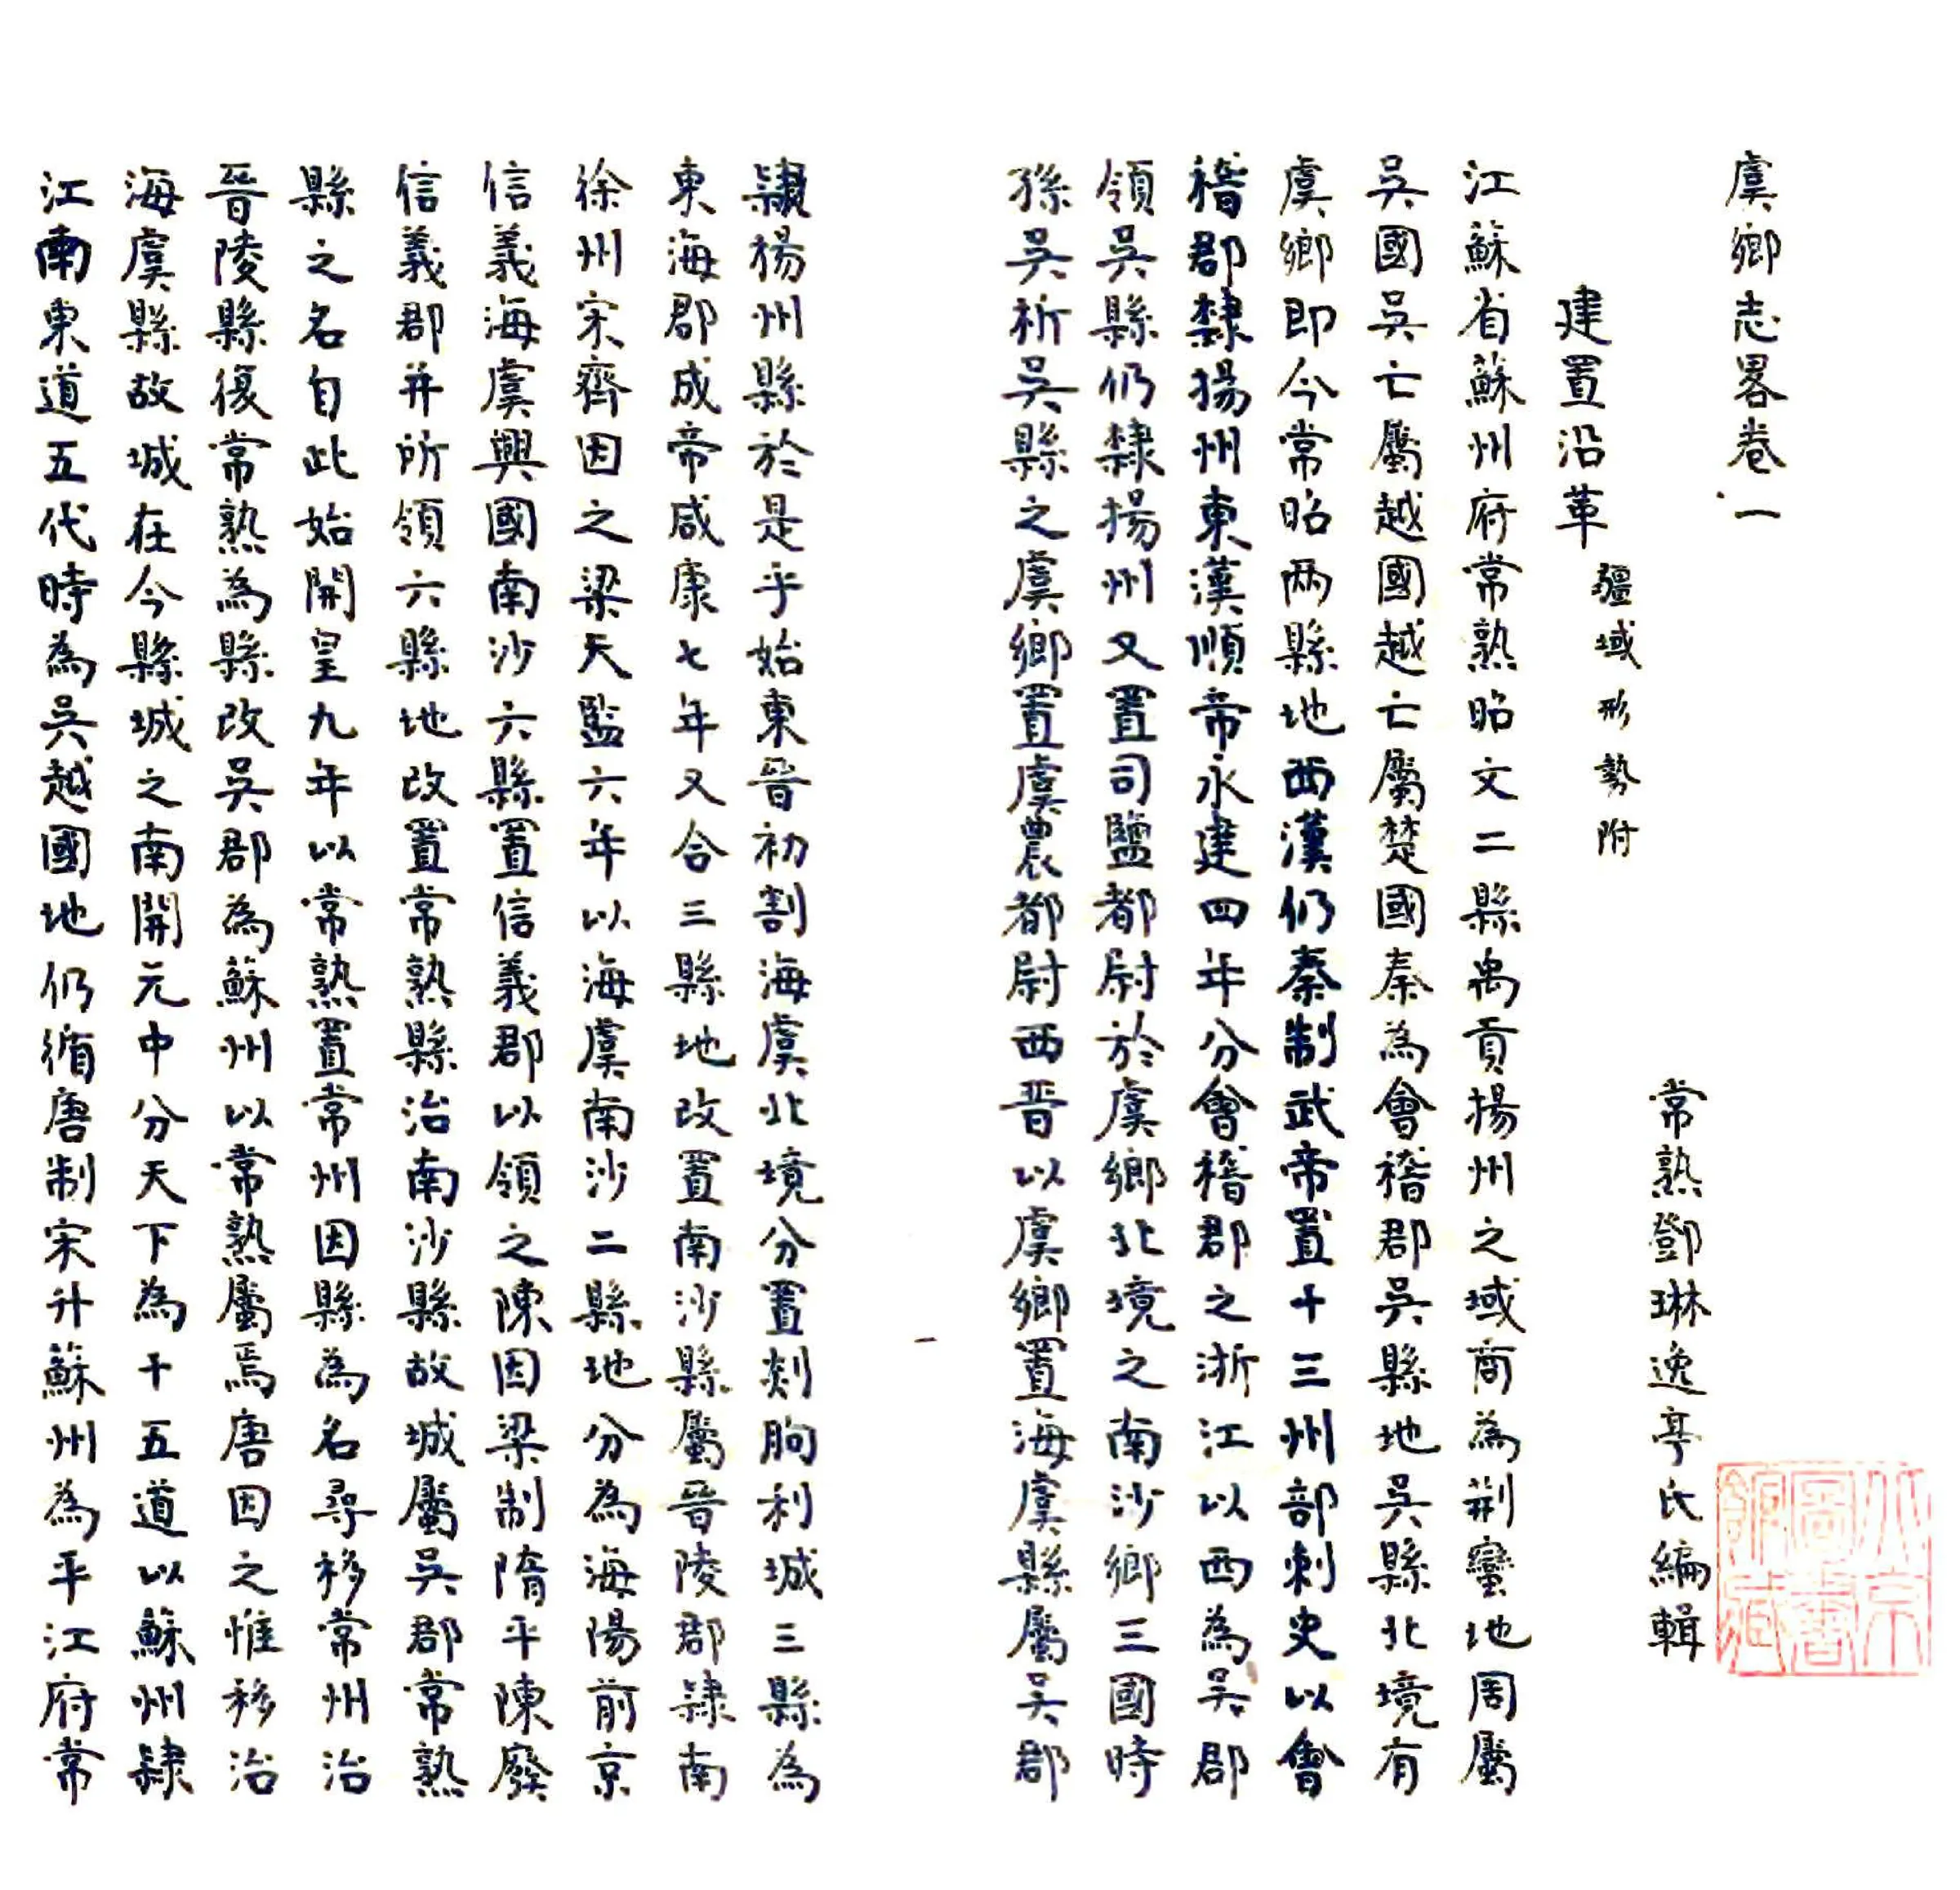 虞鄉志畧卷一
常熟鄧琳逸亭氏編輯
建置沿革 疆域形勢附
江蘇省蘇州府常熟昭文二縣禹貢揚州之域商為荆蠻地周屬
吳國吳亡屬越國越亡屬楚國秦為會稽郡吳縣地吳縣北境有
虞鄉即今常昭兩縣地西漢仍秦制武帝置十三州部刺史以會
稽郡隸揚州東漢順帝永建四年分會稽郡之浙江以西為吳郡
領吳縣仍隸揚州又置司鹽都尉於虞鄉北境之南沙鄉三國時
孫吳析吳縣之虞鄉置虞農都尉西晉以虞鄉置海虞縣屬吳郡
隸揚州縣於是乎始東晉初割海虞北境分置剡朐利城三縣為
東海郡成帝咸康七年又合三縣地改置南沙縣屬晉陵郡隸南
徐州宋齊因之梁天監六年以海虞南沙二縣地分為海陽前京
信義海虞興國南沙六縣置信義郡以領之陳因梁制隋平陳廢
信義郡并所領六縣地改置常熟縣治南沙縣故城屬吳郡常熟
縣之名自此始開皇九年以常熟置常州因縣為名尋移常州治
晉陵縣復常熟為縣改吳郡為蘇州以常熟屬焉唐因之惟移治
海虞縣故城在今縣城之南開元中分天下為十五道以蘇州隸
江南東道五代時為吳越國地仍循唐制宋升蘇州為平江府常
一
北京圖書館藏